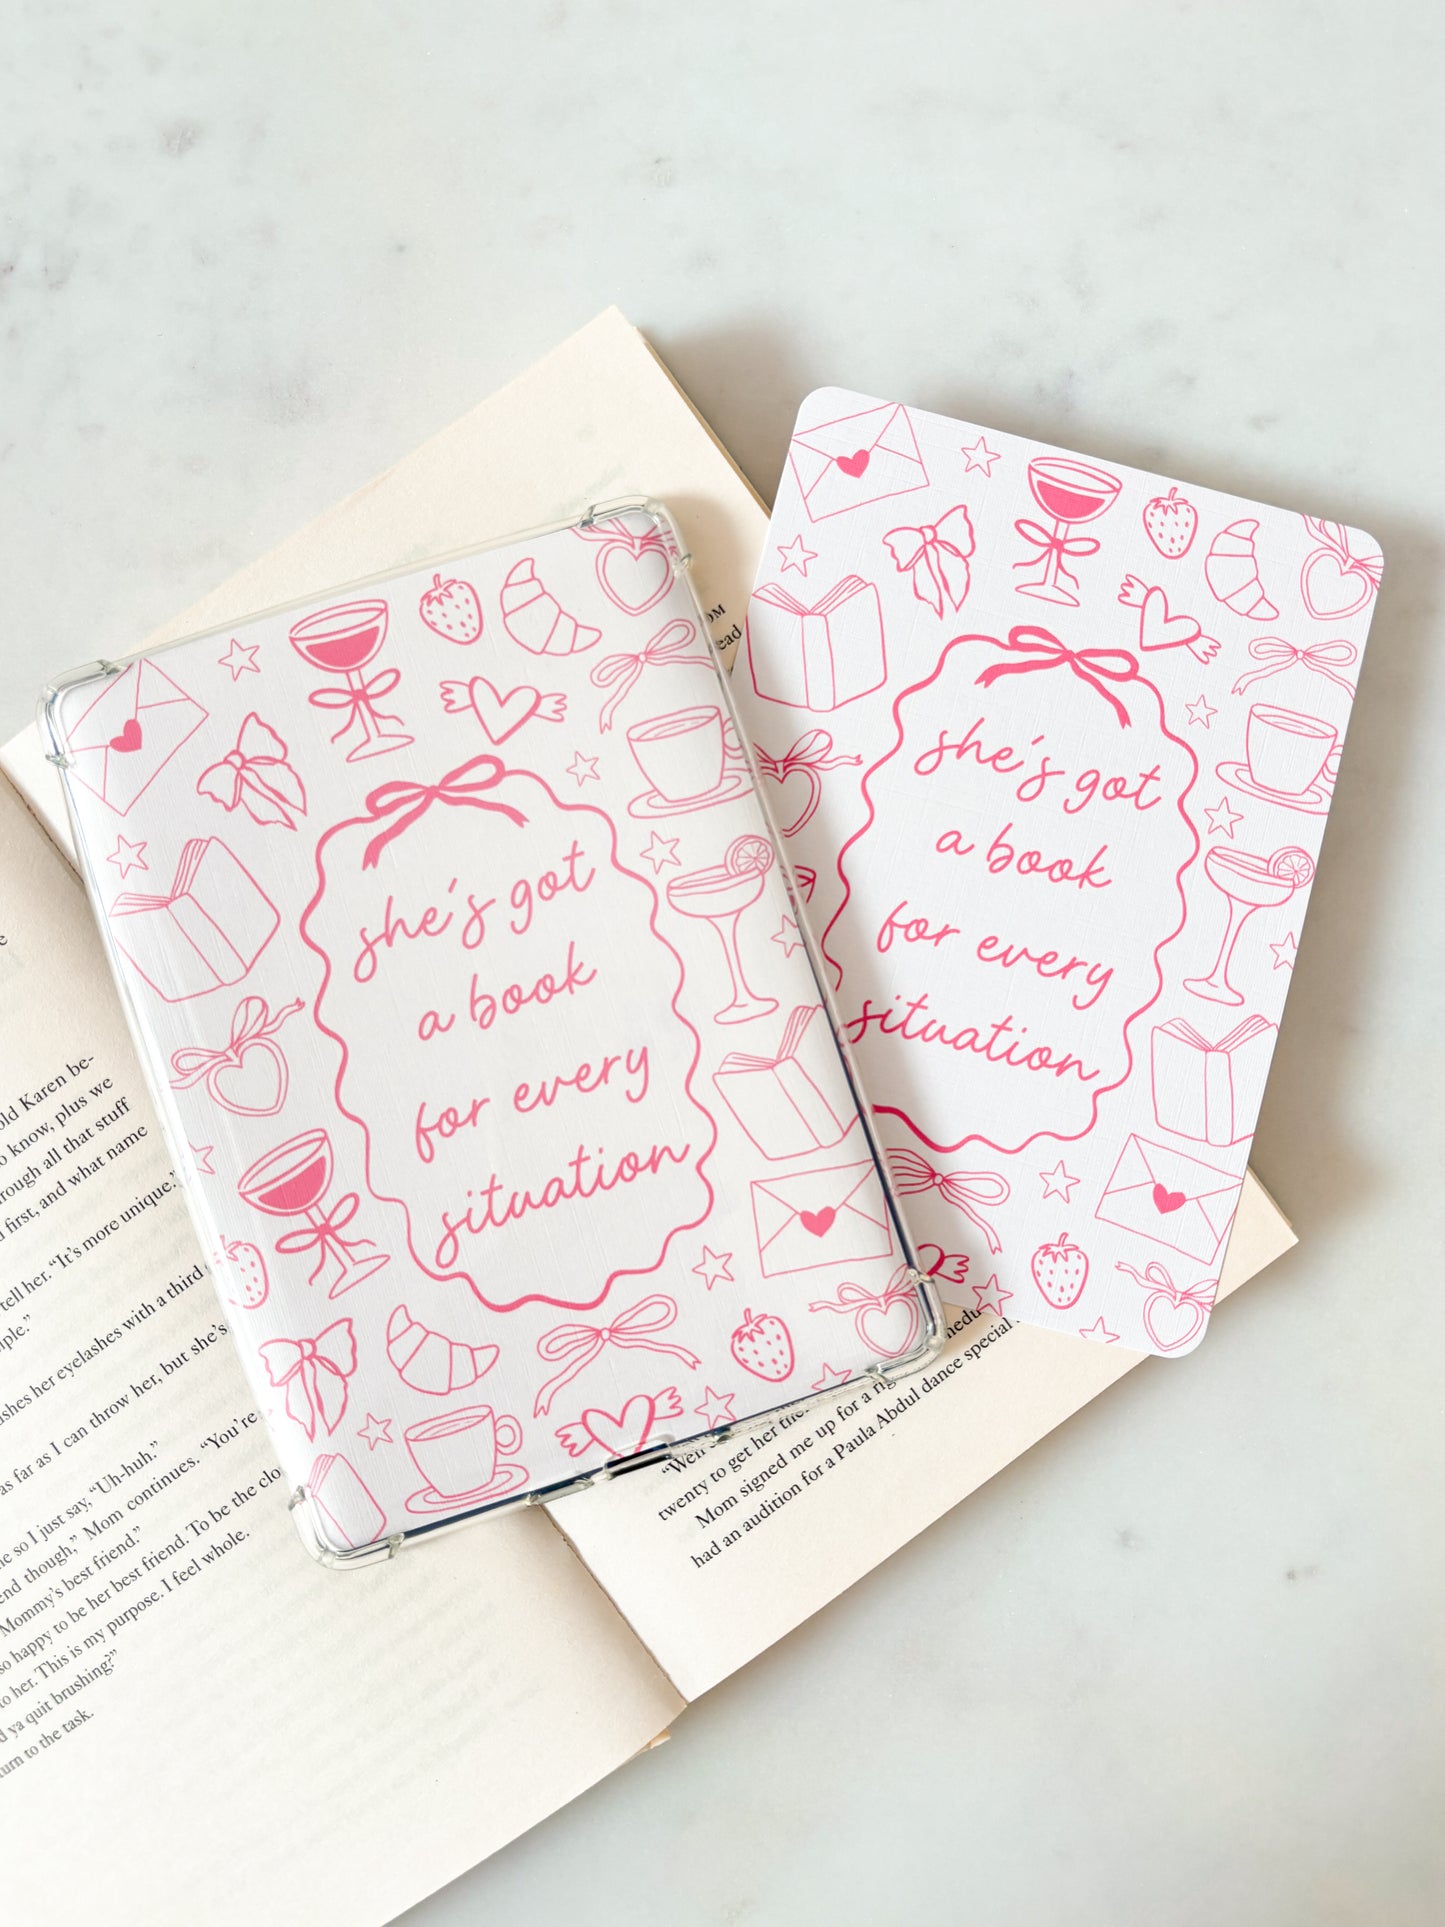 she's got
a book
for every
situation
she's got
a book
for every
situation
OM
ead
old Karen be-
o know, plus we
rough all that stuff
d first, and what name
tell her. "It's more unique."
ple."
shes her eyelashes with a third
as far as I can throw her, but she's
ne so I just say. "Uh-huh."
end though," Mom continues. "You're
Mommy's best friend."
so happy to be her best friend. To be the clo
to her. This is my purpose. I feel whole.
d ya quit brushing?"
turn to the task.
"Well
twenty to get her the
Mom signed me up for a
had an audition for a Paula Abdul dance special